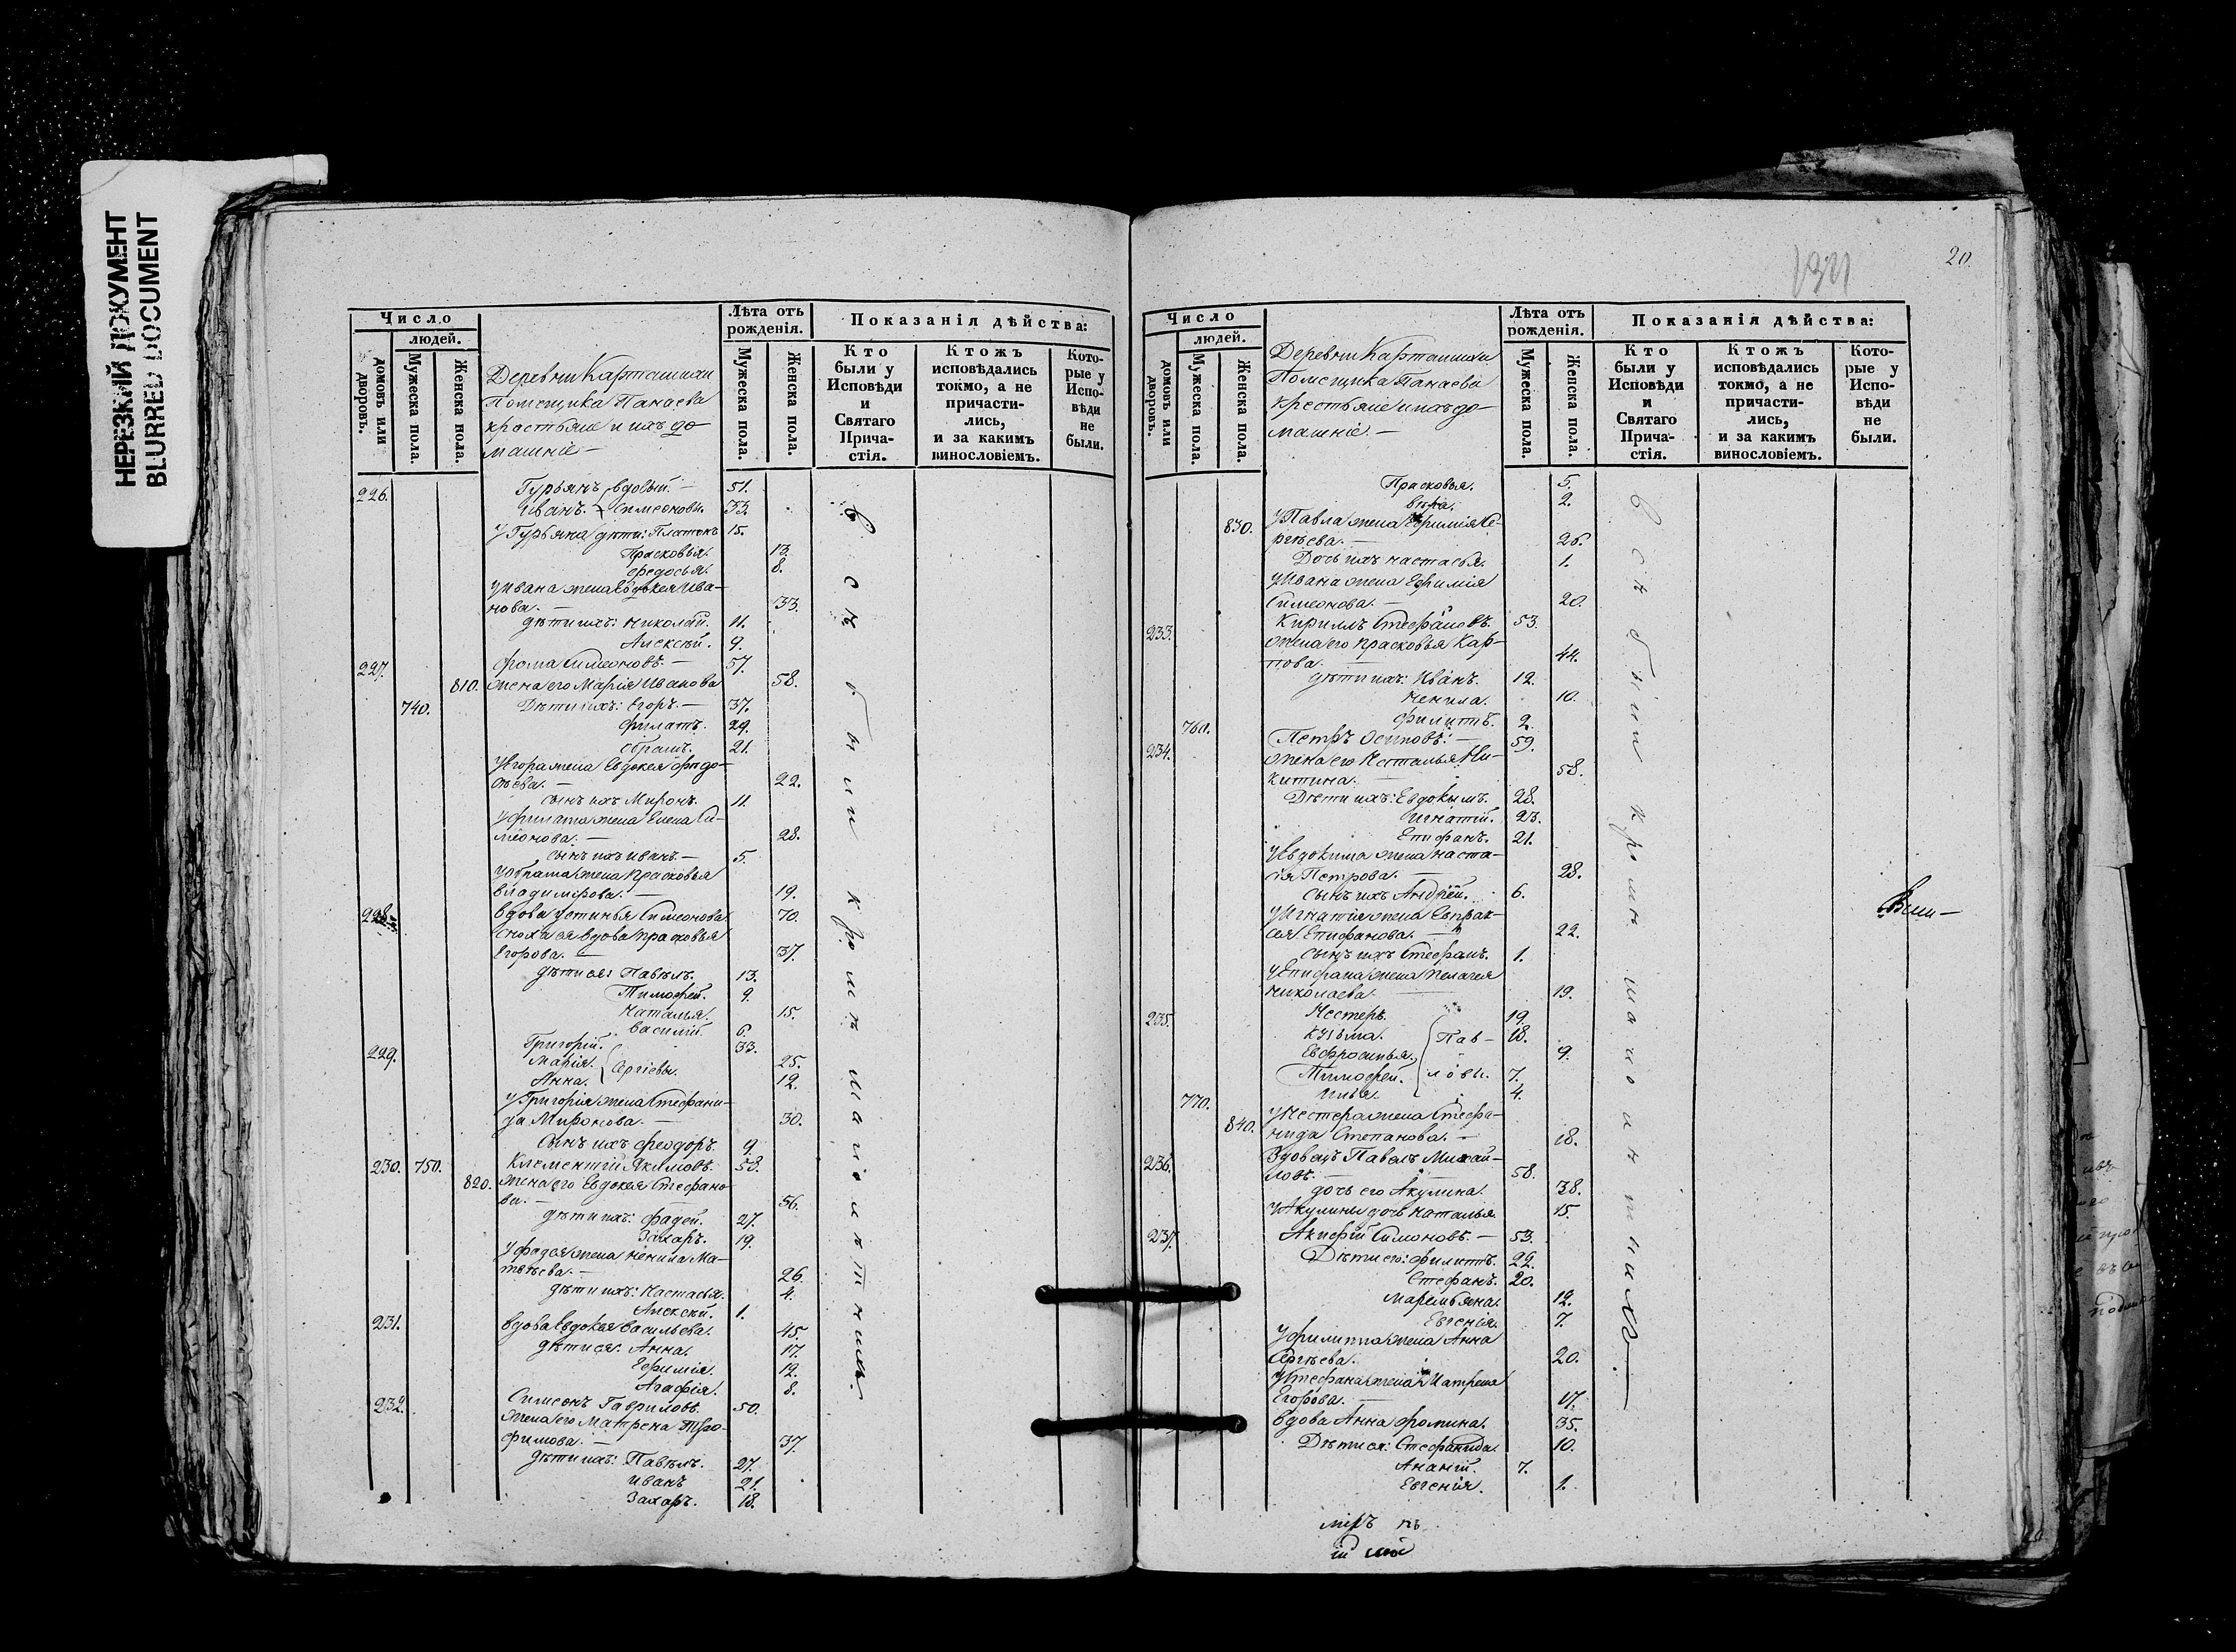 НЕРЕЗКИЙ ДОКУМЕНТ
BLURRED DOCUMENT
Число
людей.
домовъ или дворовъ.
Мужеска пола.
Женска пола.
Деревни Карташихи
Помещика Панаева
крестьяне и ихъ до
машніе –
Лѣта отъ рожденія.
Мужеска пола.
Женска пола.
Показанія дѣйства:
Кто были у Исповѣди и Святаго Причастія.
Ктожъ исповѣдались токмо, а не причастились, и за какимъ винословіемъ.
Которые у Исповѣди не были.
226. Гурьянъ вдовый. – 51.
Иванъ. – Симеоновы. 33.
У Гурьяна дѣти: Платонъ 15.
Прасковья. 13.
Ѳедосья. 8.
У Ивана жена Евдокея Ива–
нова. – 33.
дѣти ихъ: Николай. 11.
Алексѣй. 9.
227. Ѳома Симеоновъ. – 57.
810. жена его Марія Иванова 58.
740. Дѣти ихъ: Егоръ. – 37.
Филатъ. 29.
Абрамъ. 21.
У Егора жена Евдокея Ѳедо–
тьева. – 22.
сынъ ихъ Миронъ. 11.
У Филата жена Елена Си–
меонова. – 28.
сынъ ихъ Иванъ. – 5.
У Абрама жена Прасковья
Владимірова. – 19.
228. Вдова Устинья Симеонова 70.
сноха ея вдова Прасковья
Егорова. – 37.
дѣти ея: Павелъ. 13.
Тимофей. 9.
Наталья. 15.
Василій 6.
229. Григорій. 33.
Марія. Сергіевы. 25.
Анна. 12.
У Григорія жена Стефани–
да Миронова. – 30.
Сынъ ихъ Феодоръ. 9.
230. 750. Клементій Якимовъ. 58.
820. жена его Евдокея Стефано
ва. – 56.
дѣти ихъ: Фадей. 27.
Захаръ. 19.
У Фадея жена Ненила Ма–
твѣева. – 26.
дѣти ихъ: Настасья. 4.
Алексѣй. 1.
231. Вдова Евдокея Васильева. 45.
дѣти ея: Анна. 17.
Ефимія. 12.
Агафія. 8.
232. Симеонъ Гавриловъ. 50.
жена его Матрена Тро–
фимова. – 37.
дѣти ихъ: Павелъ. 27.
Иванъ 21.
Захаръ. 18.
всѣ были кромѣ малолѣтнихъ.
20
1311
Число
людей.
домовъ или дворовъ.
Мужеска пола.
Женска пола.
Деревни Карташихи
Помещика Панаева
крестьяне и ихъ до–
машніе. –
Лѣта отъ рожденія.
Мужеска пола.
Женска пола.
Показанія дѣйства:
Кто были у Исповѣди и Святаго Причастія.
Ктожъ исповѣдались токмо, а не причастились, и за какимъ винословіемъ.
Которые у Исповѣди не были.
Прасковья. 5.
Вѣра. 2.
830. У Павла жена Ефимія Се–
ргѣева. – 26.
Дочь ихъ Настасья. 1.
У Ивана жена Ефимія
Симеонова. – 20.
233. Кириллъ Стефановъ. 53.
жена его Прасковья Кар–
пова. – 44.
дѣти ихъ: Иванъ. 12.
Ненила. 10.
760. Филиппъ. 2.
234. Петръ Осиповъ. – 59.
жена его Наталья Ни–
китина. – 58.
Дѣти ихъ: Евдокимъ. 28.
Игнатій. 23.
Епифанъ. 21.
У Евдокима жена Наста–
сія Петрова. – 28.
сынъ ихъ Андрей. 6.
У Игнатія жена Евпрак–
сея Епифанова. – 22.
сынъ ихъ Стефанъ. 1.
У Епифана жена Пелагея
Николаева. – 19.
235. Нестеръ. 19.
Кузьма. Пав– 18.
Евфросинья. 9.
Тимофей. ловы. 7.
770. Илья. 4.
840. У Нестера жена Стефа–
нида Степанова. – 18.
236. Вдовецъ Павелъ Михай–
ловъ. – 58.
дочь его Акулина. 38.
У Акулины дочь Наталья. 15.
237. Акифій Симоновъ. – 53.
Дѣти его: Филиппъ. 22.
Стефанъ. 20.
Маремьяна. 12.
Евгенія. 7.
У Филиппа жена Анна
Сергѣева. 20.
У Стефана жена Матрена
Егорова. – 17.
Вдова Анна Фомина. 35.
Дѣти ея: Стефанида. 10.
Ананій. 7.
Евгенія. 1.
всѣ были кромѣ малолѣтнихъ.